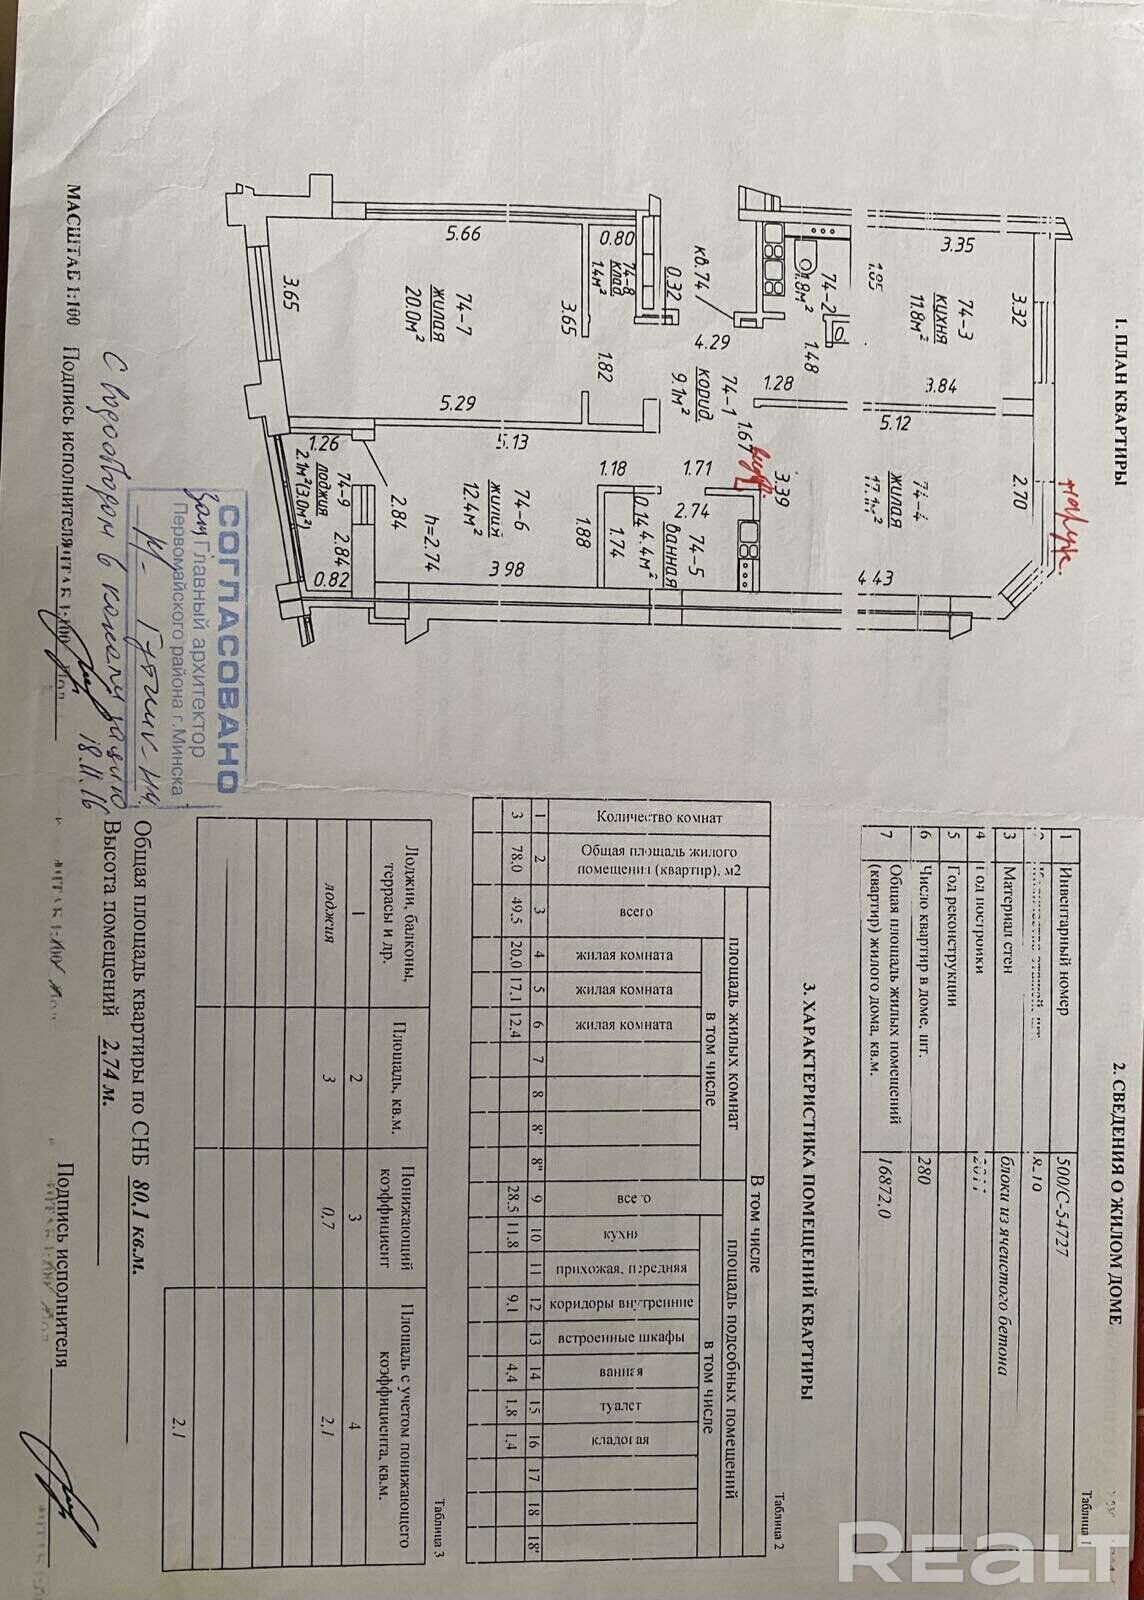 1. ПЛАН КВАРТИРЫ
наруж.
3.35
3.32
74-3
кухня
11.8м²
3.84
2.70
1.85
74-2
1.8м²
1.48
1.28
5.12
74-4
жилая
17.1м²
4.43
кв.74
0.32
4.29
74-1
корид.
9.1м²
1.67
3.39
0.80
74-8
клад.
1.4м²
1.82
1.18
1.71
2.74
74-5
ванная
4.4м²
0.14
1.74
1.88
5.66
74-7
жилая
20.0м²
3.65
3.65
5.29
5.13
74-6
жилая
12.4м²
3.98
h=2.74
2.84
1.26
74-9
лоджия
2.1м²(3.0м²)
2.84
0.82
МАСШТАБ 1:100
Подпись исполнителя
СОГЛАСОВАНО
Зам Главный архитектор
Первомайского района г.Минска
18.11.16
2. СВЕДЕНИЯ О ЖИЛОМ ДОМЕ
Таблица 1
1 Инвентарный номер 500/С-54727
3 Материал стен блоки из ячеистого бетона
4 Год постройки 2011
5 Год реконструкции
6 Число квартир в доме, шт. 280
7 Общая площадь жилых помещений
(квартир) жилого дома, кв.м. 16872,0
3. ХАРАКТЕРИСТИКА ПОМЕЩЕНИЙ КВАРТИРЫ
Таблица 2
Количество комнат
Общая площадь жилого
помещения (квартир), м2
В том числе
площадь жилых комнат
площадь подсобных помещений
всего
в том числе
жилая комната
жилая комната
жилая комната
всего
в том числе
кухня
прихожая, передняя
коридоры внутренние
встроенные шкафы
ванная
туалет
кладовая
1 2 3 4 5 6 7 8 8' 8" 9 10 11 12 13 14 15 16 17 18 18"
3 78.0 49.5 20,0 17,1 12,4 28.5 11,8 9,1 4,4 1,8 1,4
Таблица 3
Лоджии, балконы,
террасы и др.
Площадь, кв.м.
Понижающий
коэффициент
Площадь с учетом понижающего
коэффициента, кв.м.
1 2 3 4
лоджия 3 0,7 2,1
2,1
Общая площадь квартиры по СНБ 80,1 кв.м.
Высота помещений 2,74 м.
Подпись исполнителя
REALT